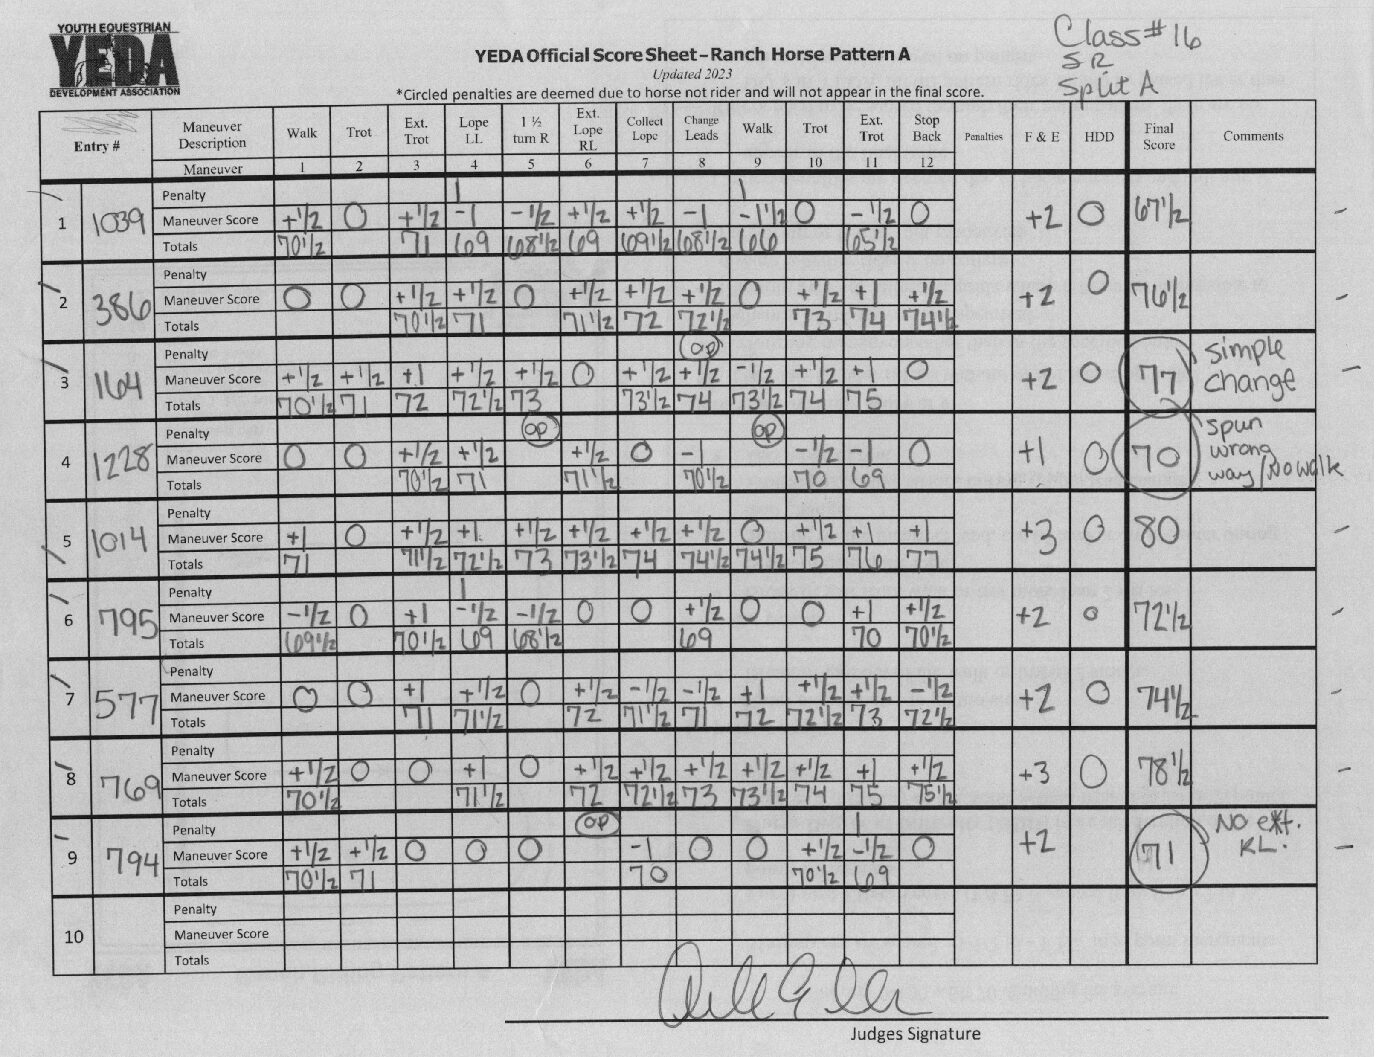 YOUTH EQUESTRIAN
YEDA
DEVELOPMENT ASSOCIATION
Class# 16
SR
Split A
YEDA Official Score Sheet – Ranch Horse Pattern A
Updated 2023
*Circled penalties are deemed due to horse not rider and will not appear in the final score.
Entry # Maneuver Description Walk Trot Ext. Trot Lope LL 1 ½ turn R Ext. Lope RL Collect Lope Change Leads Walk Trot Ext. Trot Stop Back Penalties F & E HDD Final Score Comments
Maneuver 1 2 3 4 5 6 7 8 9 10 11 12
1 1039 Penalty 1 1
Maneuver Score +1/2 0 +1/2 -1 -1/2 +1/2 +1/2 -1 -1 1/2 0 -1/2 0 +2 0 67 1/2
Totals 70 1/2 71 69 68 1/2 69 69 1/2 68 1/2 66 65 1/2
2 386 Penalty
Maneuver Score 0 0 +1/2 +1/2 0 +1/2 +1/2 +1/2 0 +1/2 +1 +1/2 +2 0 76 1/2
Totals 70 1/2 71 71 1/2 72 72 1/2 73 74 74 1/2
3 164 Penalty OP
Maneuver Score +1/2 +1/2 +1 +1/2 +1/2 0 +1/2 +1/2 -1/2 +1/2 +1 0 +2 0 77 Simple change
Totals 70 1/2 71 72 72 1/2 73 73 1/2 74 73 1/2 74 75
4 1228 Penalty OP OP
Maneuver Score 0 0 +1/2 +1/2 +1/2 0 -1 -1/2 -1 0 +1 0 70 Spun wrong way/No walk
Totals 70 1/2 71 71 1/2 70 1/2 70 69
5 1014 Penalty
Maneuver Score +1 0 +1/2 +1 +1/2 +1/2 +1/2 +1/2 0 +1/2 +1 +1 +3 0 80
Totals 71 71 1/2 72 1/2 73 73 1/2 74 74 1/2 74 1/2 75 76 77
6 795 Penalty 1
Maneuver Score -1/2 0 +1 -1/2 -1/2 0 0 +1/2 0 0 +1 +1/2 +2 0 72 1/2
Totals 69 1/2 70 1/2 69 68 1/2 69 70 70 1/2
7 577 Penalty
Maneuver Score 0 0 +1 +1/2 0 +1/2 -1/2 -1/2 +1 +1/2 +1/2 -1/2 +2 0 74 1/2
Totals 71 71 1/2 72 71 1/2 71 72 72 1/2 73 72 1/2
8 769 Penalty
Maneuver Score +1/2 0 0 +1 0 +1/2 +1/2 +1/2 +1/2 +1/2 +1 +1/2 +3 0 78 1/2
Totals 70 1/2 71 1/2 72 72 1/2 73 73 1/2 74 75 75 1/2
9 794 Penalty OP 1
Maneuver Score +1/2 +1/2 0 0 0 -1 0 0 +1/2 -1/2 0 +2 71 No ext. RL.
Totals 70 1/2 71 70 70 1/2 69
10 Penalty
Maneuver Score
Totals
Judges Signature